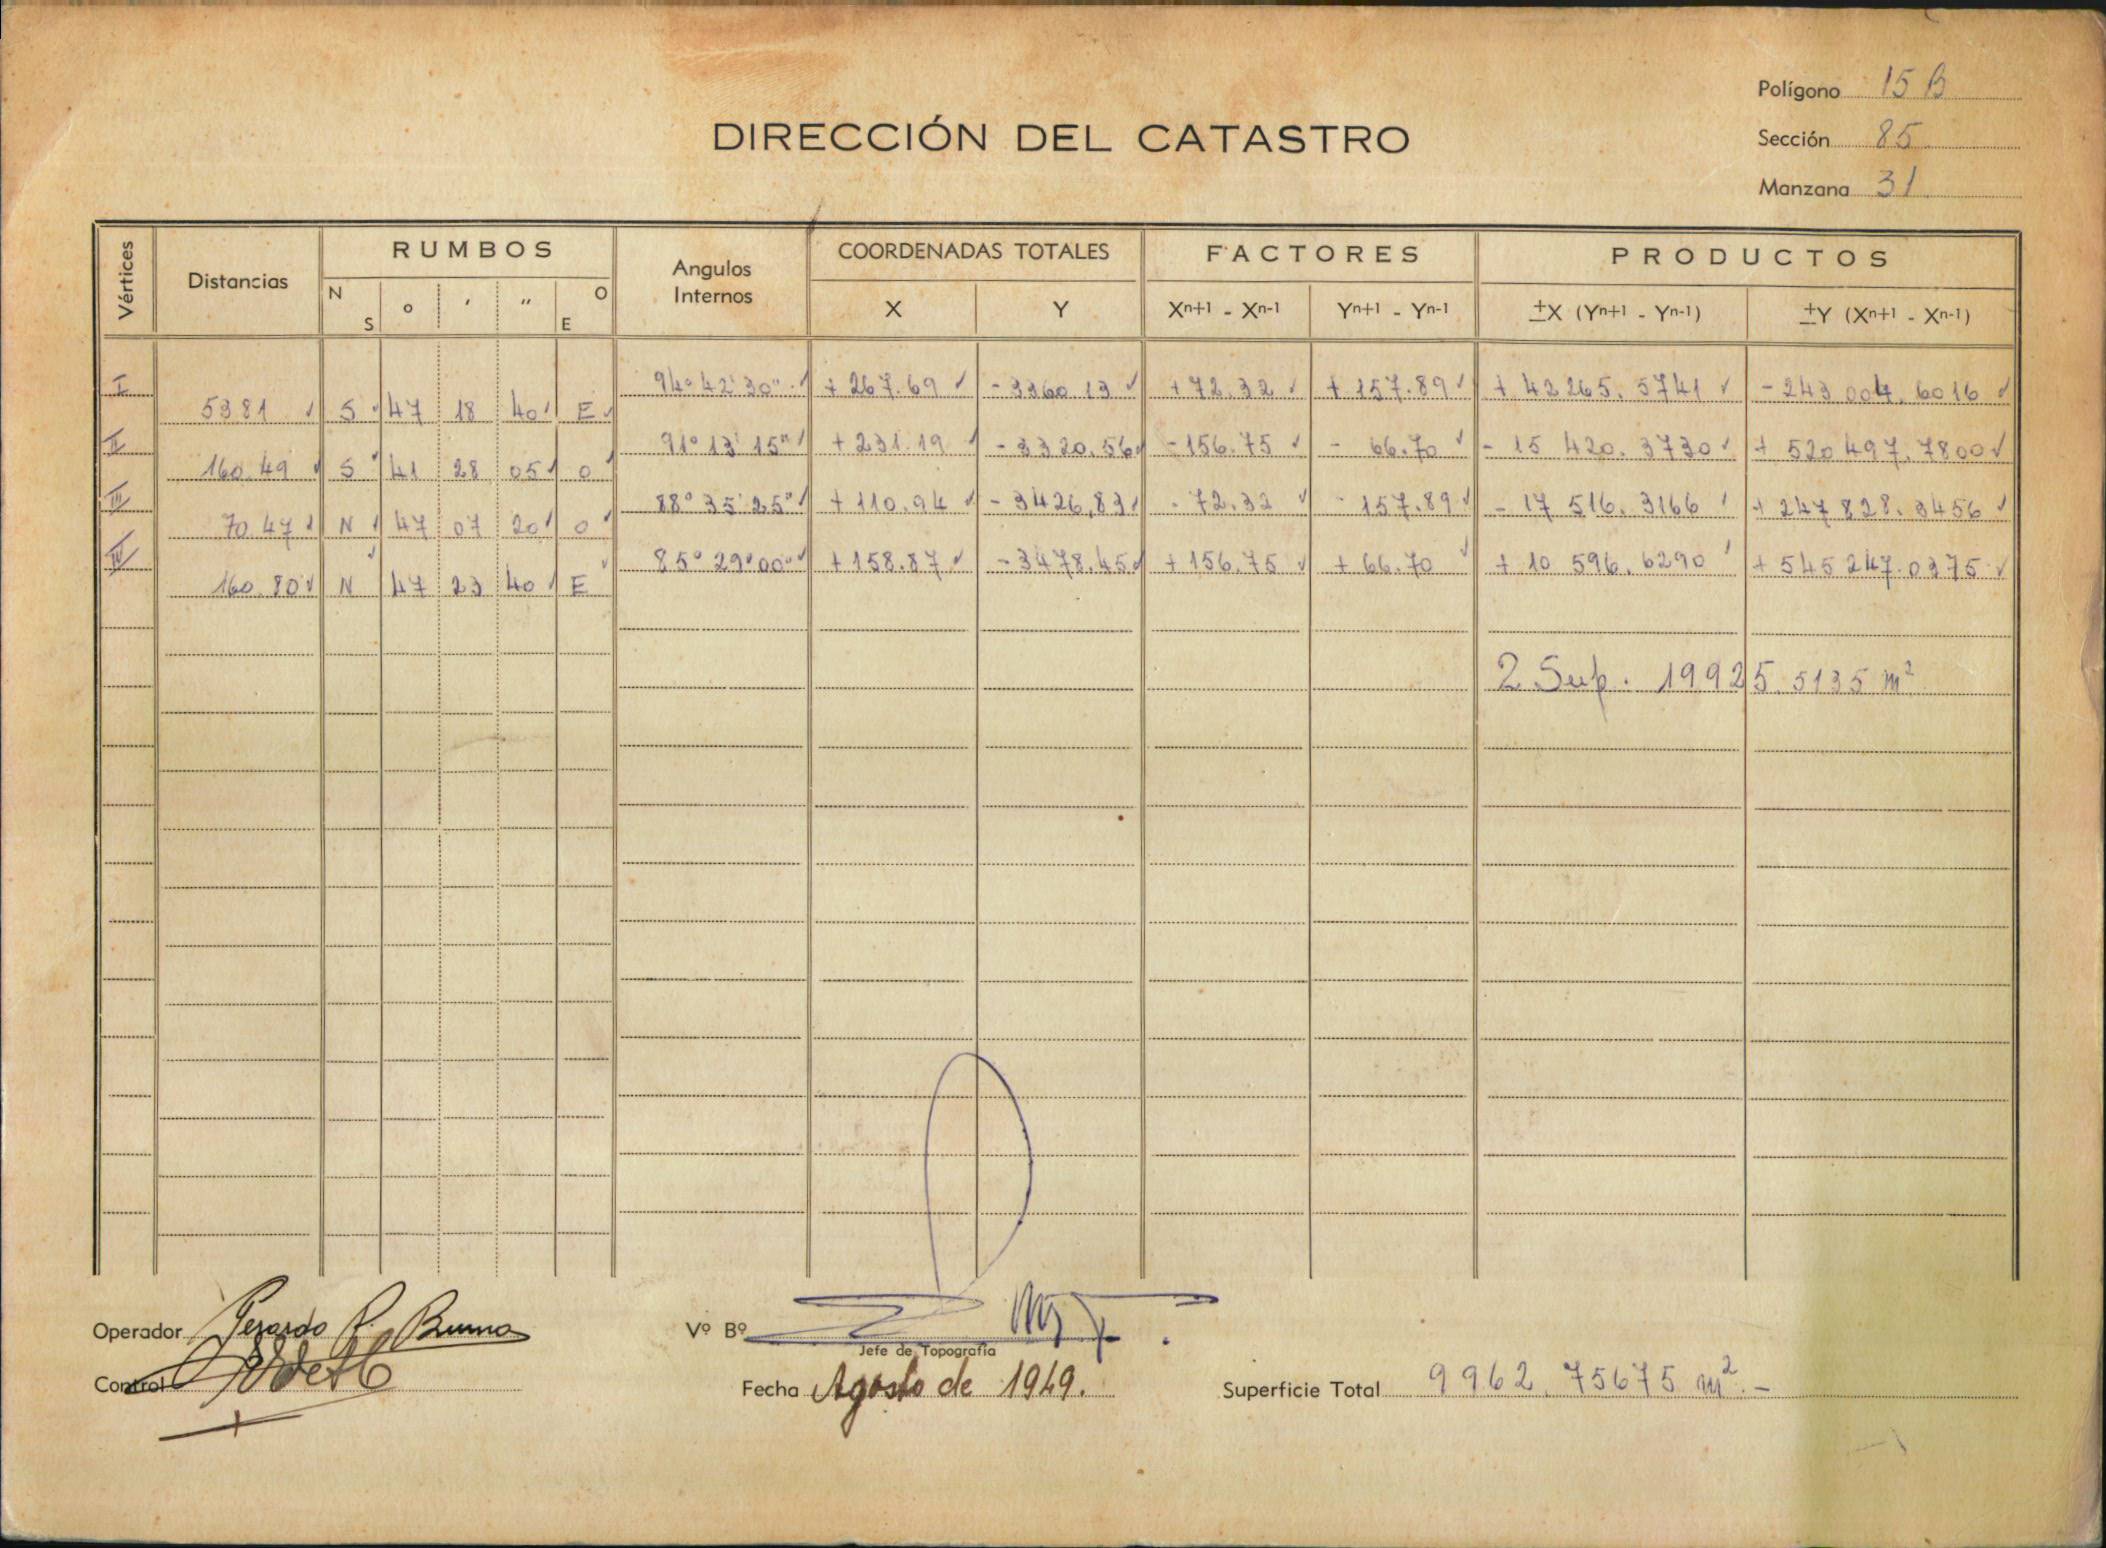 Polígono 15 B
DIRECCIÓN DEL CATASTRO
Sección 85
Manzana 31
Vértices Distancias RUMBOS Angulos Internos COORDENADAS TOTALES FACTORES PRODUCTOS
N S ° ' '' O E X Y Xn+1 - Xn-1 Yn+1 - Yn-1 ±X (Yn+1 - Yn-1) ±Y (Xn+1 - Xn-1)
I 94° 42' 30'' + 267.69 - 3360.13 + 72.32 + 157.89 + 42265.5741 - 243 004.6016
5381 S 47 18 40 E
II 91° 13' 15'' + 231.19 - 3320.56 - 156.75 - 66.70 - 15 420.3730 + 520 497.7800
160.49 S 41 28 05 O
III 88° 35' 25'' + 110.94 - 3426.83 - 72.32 - 157.89 - 17 516.3166 + 247 828.3456
70.47 N 47 07 20 O
IV 85° 29° 00'' + 158.87 - 3478.45 + 156.75 + 66.70 + 10 596.6290 + 545 247.0375
160.80 N 47 23 40 E
2 Sup. 19925.5135 m²
Operador Gerardo R.
Vº Bº
Jefe de Topografía
Control
Fecha Agosto de 1949.
Superficie Total 9962.75675 m².-